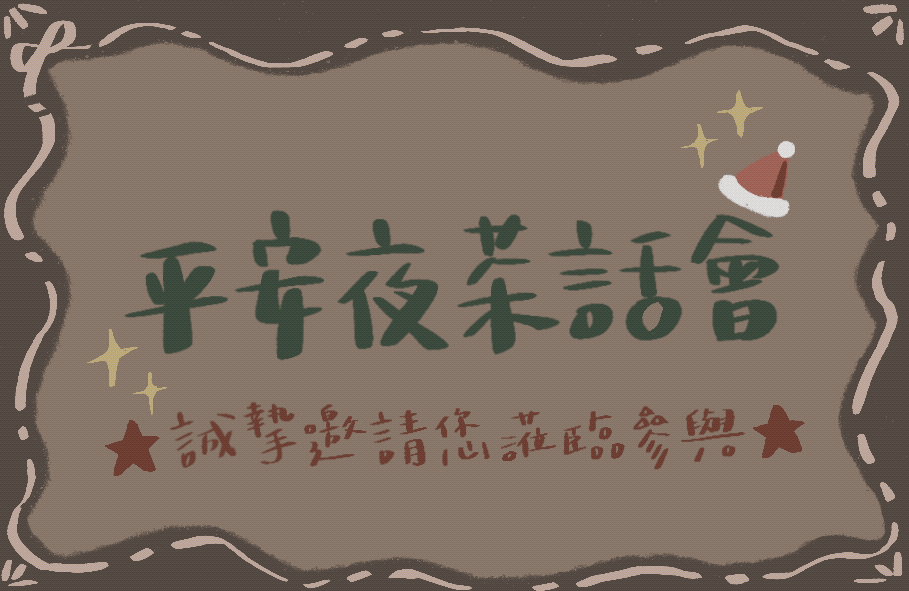 平安夜茶話會
誠摯邀請您蒞臨參與